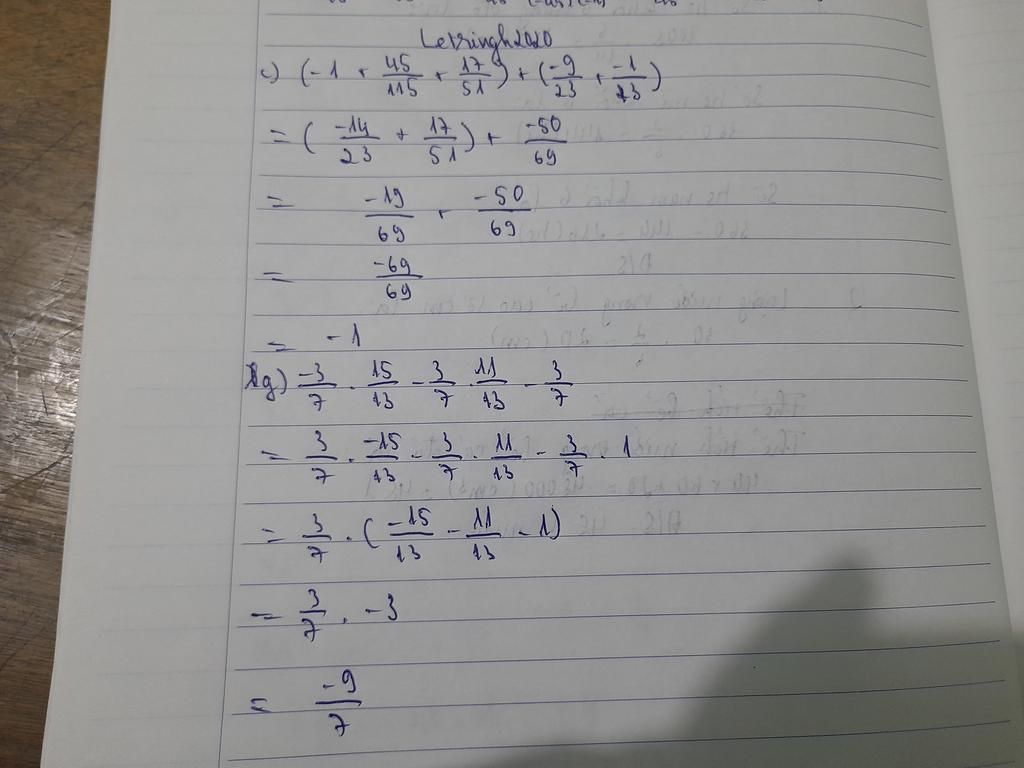 Letsingh2020
c) (-1 + 45/115 + 17/51) + (-9/23 + -1/23)
= (-14/23 + 17/51) + -50/69
= -19/69 + -50/69
= -69/69
= -1
g) -3/7 . 15/13 - 3/7 . 11/13 - 3/7
= 3/7 . -15/13 - 3/7 . 11/13 - 3/7 . 1
= 3/7 . (-15/13 - 11/13 - 1)
= 3/7 . -3
= -9/7